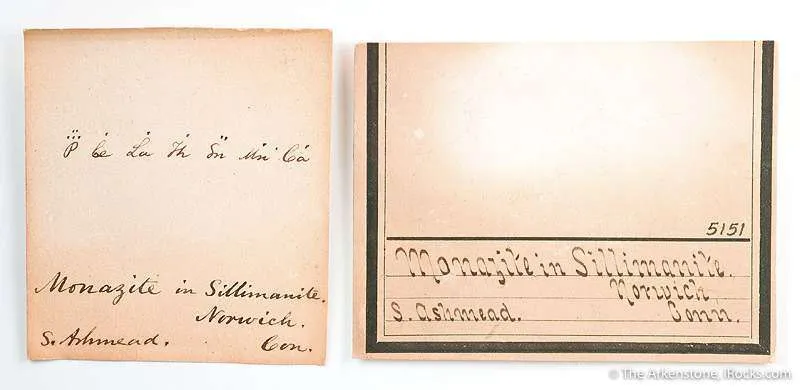 P̈ Ċe L̇a Ṫh S̈n Ṁn Ċa
Monazite in Sillimanite.
Norwich.
S. Ashmead. Con.
5151
Monazite in Sillimanite.
Norwich
S. Ashmead. Conn.
© The Arkenstone, iRocks.com